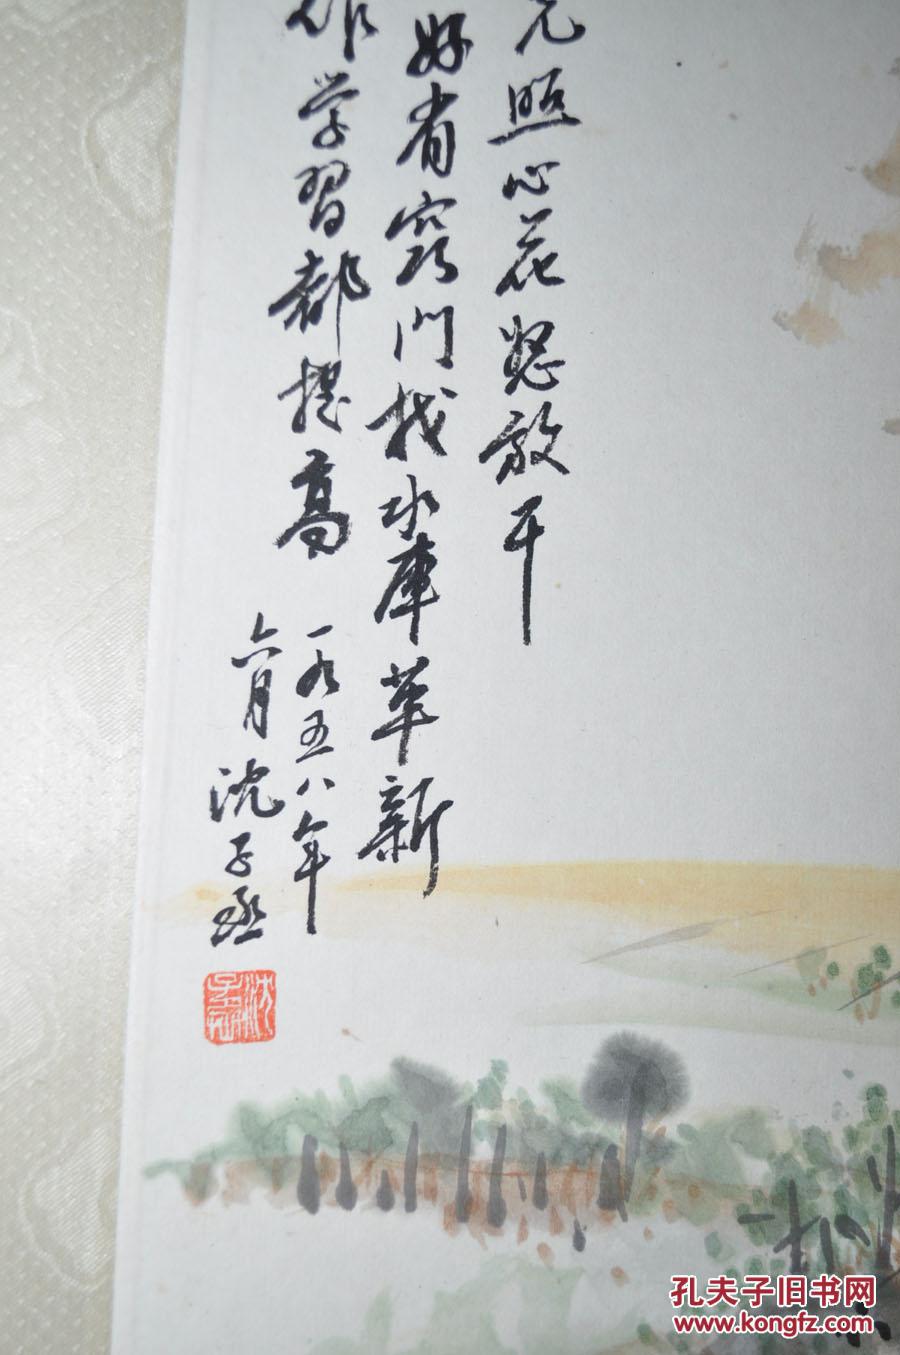 光照心花怒放干
好省窍門找水庫革新
作学習都提高
一九五八年
六月沈子丞
孔夫子旧书网
www.kongfz.com